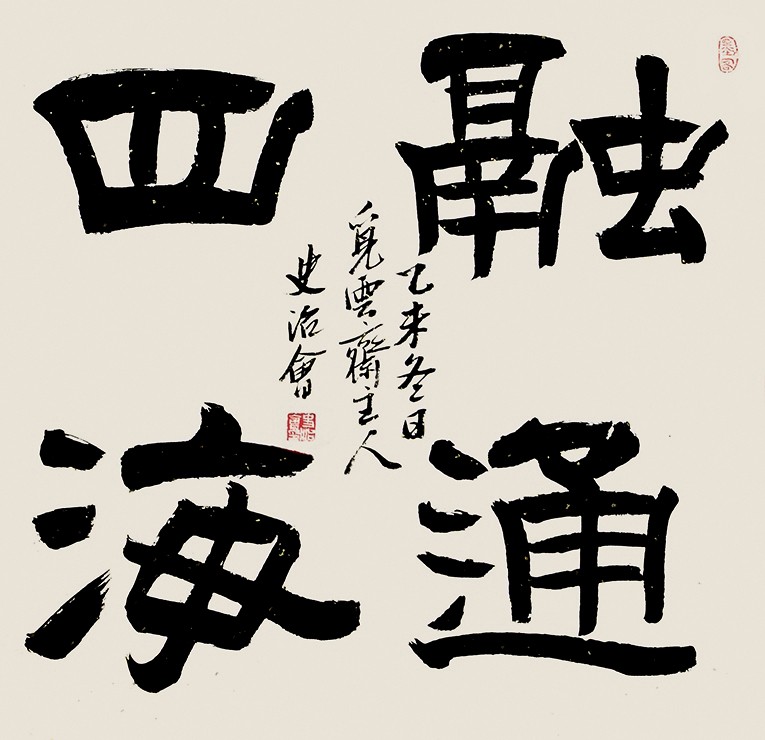 融通
四海
乙未冬日
覓雲齋主人
史治會